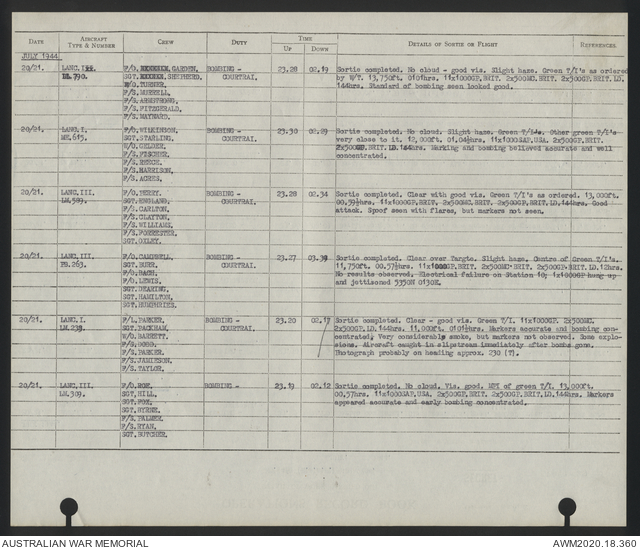 DATE AIRCRAFT TYPE & NUMBER CREW DUTY TIME UP DOWN DETAILS OF SORTIE OR FLIGHT REFERENCES
JULY 1944
20/21. LANC. BOMBING - 23.28 02.19 Sortie completed. No cloud - good vis. Slight haze. Green T/I's as ordered
790. SGT. SHEPHERD. COURTRAI. by W/T. 13,750ft. 0101hrs. 11x1000GP.BRIT. 2x500MC. BRIT. 2x500GP.BRIT.LD.
W/O. TURNER. 144hrs. Standard of bombing seen looked good.
F/S. MORRELL.
F/S. ARMSTRONG.
F/S. FITZGERALD.
F/S. MAYNARD.
20/21. LANC. I. F/O. WILKINSON. BOMBING - 23.30 02.29 Sortie completed. No cloud. Slight haze. Green T/I's. Other green T/I's
ME.615. SGT. STARLING. COURTRAI. very close to it. 12,000ft. 01.04½hrs. 11x1000SAP.USA. 2x500GP.BRIT.
W/O. GELDER. 2x500GP.BRIT.LD.144hrs. Marking and bombing believed accurate and well
F/S. FISCHER. concentrated.
F/S. REECE.
F/S. HARRISON.
F/S. ACRES.
20/21. LANC. III. F/O. TERRY. BOMBING - 23.28 02.34 Sortie completed. Clear with good vis. Green T/I's as ordered. 13,000ft.
LM.589. SGT. ENGLAND. COURTRAI. 00.59½hrs. 11x1000GP.BRIT. 2x500MC. BRIT. 2x500GP.BRIT.LD.144hrs. Good
F/S. CARLTON. attack. Spoof seen with flares, but markers not seen.
F/S. CLAYTON.
F/S. WILLIAMS.
F/S. FORRESTER.
SGT. OXLEY.
20/21. LANC. III. F/O. CAMPBELL. BOMBING - 23.27 Sortie completed. Clear over Targte. Slight haze. Centre of Green T/I's.
PB.263. SGT. BURR. COURTRAI. 11,750ft. 00.57½hrs. 11x1000GP.BRIT. 2x500MC. BRIT. 2x500GP.BRIT.LD.12hrs.
F/O. BACH. No results observed. Electrical failure on Station 10; 1x1000GP hung up
F/O. LEWIS. and jettisoned 5350N 0130E.
SGT. DEARING.
SGT. HAMILTON.
SGT. HUMPHRIES.
20/21. LANC. I. F/L. PARKER. BOMBING - 23.20 02.17 Sortie completed. Clear - good vis. Green T/I. 11x1000GP. 2x500MC.
SGT. PACKHAM. COURTRAI. 2x500GP.LD.144hrs. 11,000ft. 0101½hrs. Markers accurate and bombing con-
W/O. BARRETT. centrated. Very considerable smoke, but markers not observed. Some explo-
F/S. DODD. sions. Aircraft caught in slipstream immediately after bombs gone.
F/S. PARKER. Photograph probably on heading approx. 230 (T).
F/S. JAMIESON.
F/S. TAYLOR.
20/21. LANC. III. F/O. ROE. BOMBING - 23.19 02.12 Sortie completed. No cloud. Vis. good. MPI of green T/I. 13,000ft.
LM.309. SGT. HILL. 00.57hrs. 11x1000SAP.USA. 2x500GP.BRIT. 2x500GP.BRIT.LD.144hrs. Markers
SGT. FOX. appeared accurate and early bombing concentrated.
SGT. BYRNE.
F/S. PALMER.
F/S. RYAN.
SGT. BUTCHER.
AUSTRALIAN WAR MEMORIAL AWM2020.18.360